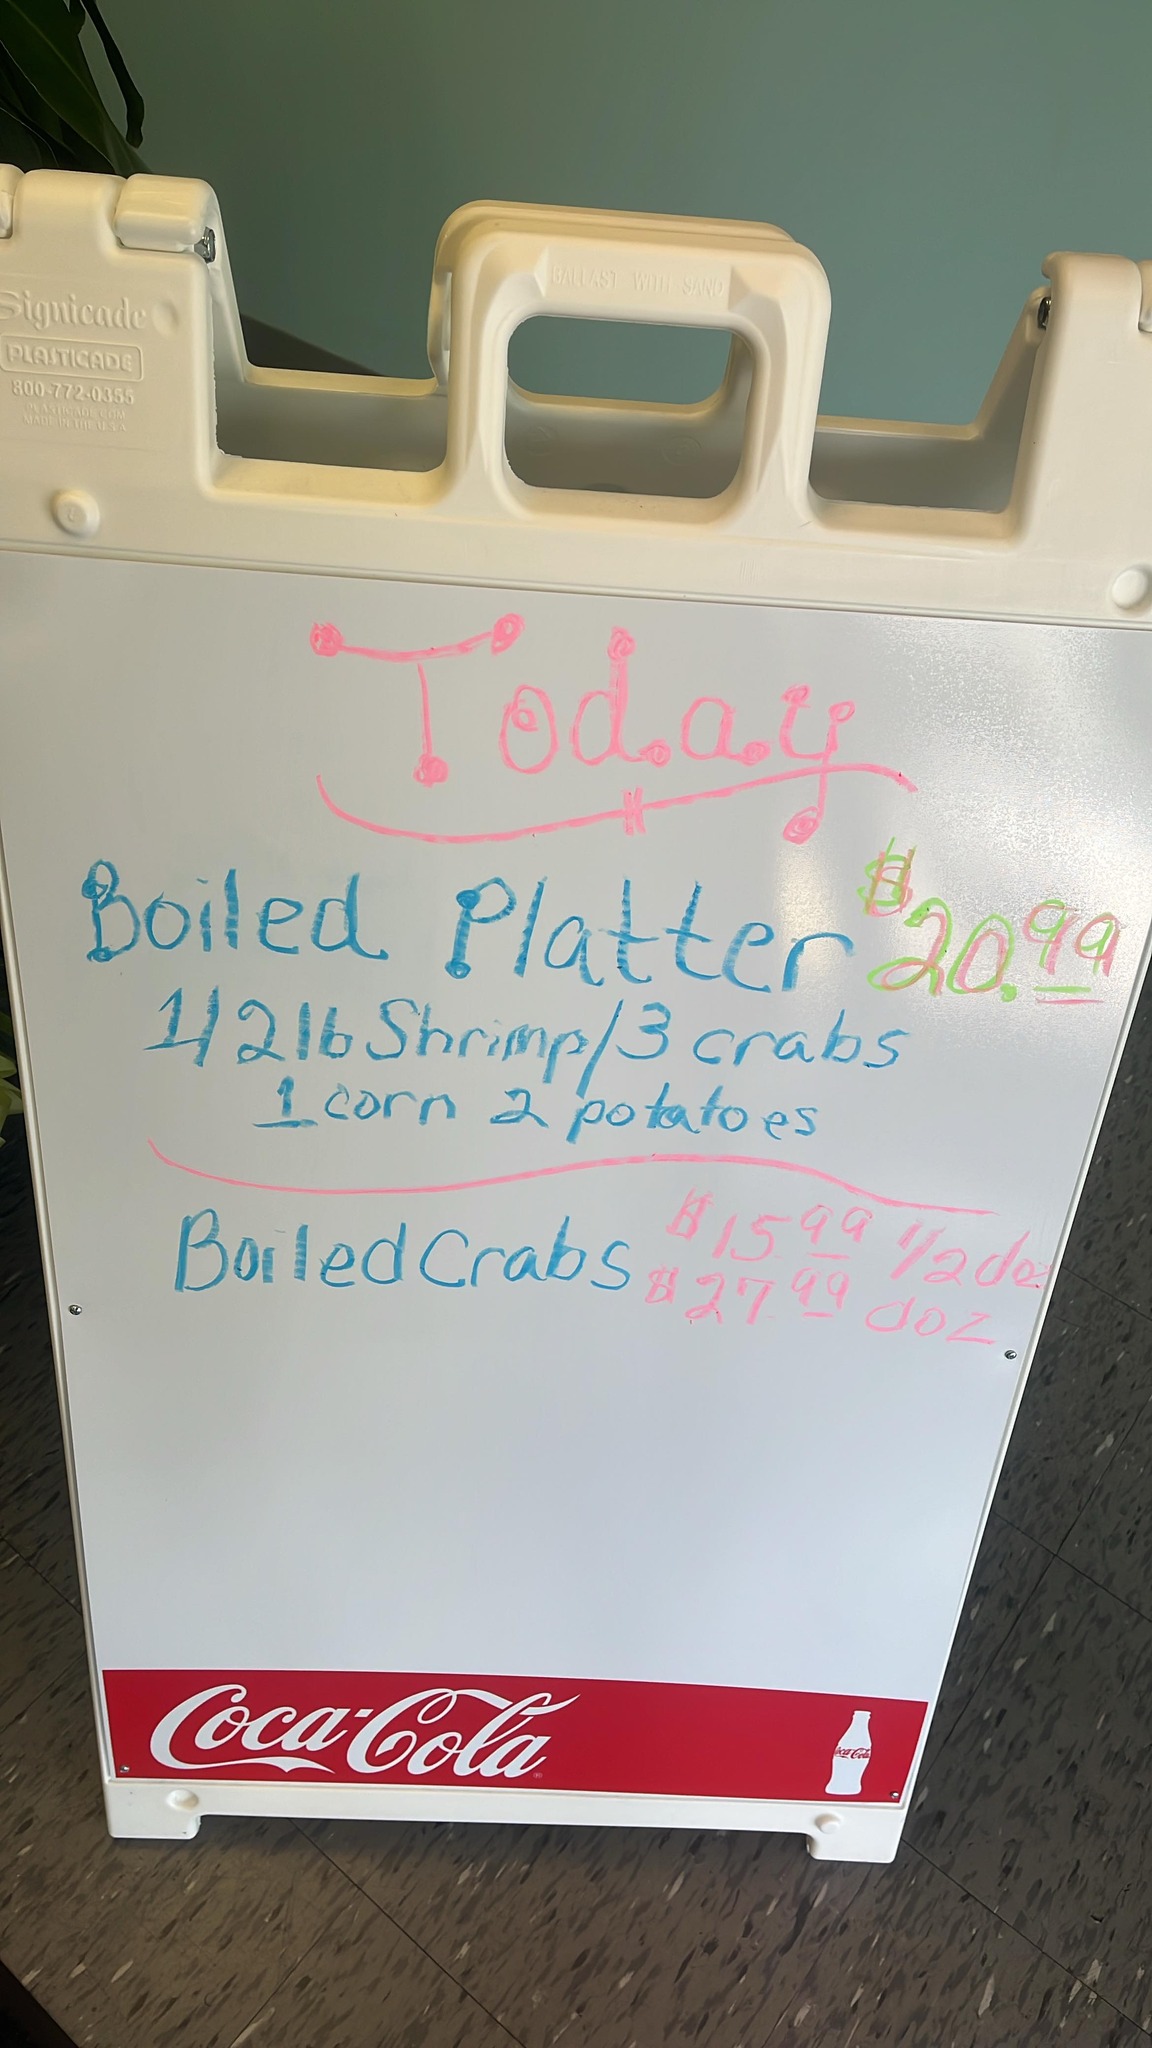 BALLAST WITH SAND
Signicade
PLASTICADE
800-772-0355
PLASTICADE.COM
MADE IN THE U.S.A
Today
Boiled Platter $20.99
1/2 lb Shrimp/3 crabs
1 corn 2 potatoes
Boiled Crabs $15.99 1/2 doz
$27.99 doz
Coca-Cola
Coca-Cola